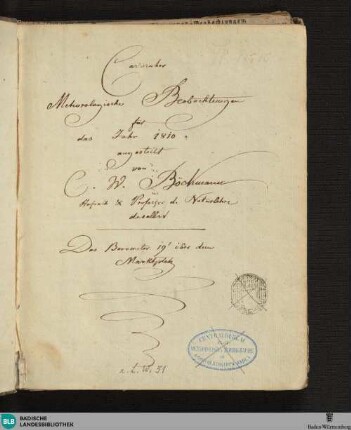 Carlsruher
Meteorologische Beobachtungen
für
das Jahr 1810.
angestellt
von
C. W. Böckmann
Hofrath & Professor der Naturlehre
daselbst
Das Barometer 19' über dem
Marktplatz
CENTRALBUREAU
BLB BADISCHE
LANDESBIBLIOTHEK
Baden-Württemberg